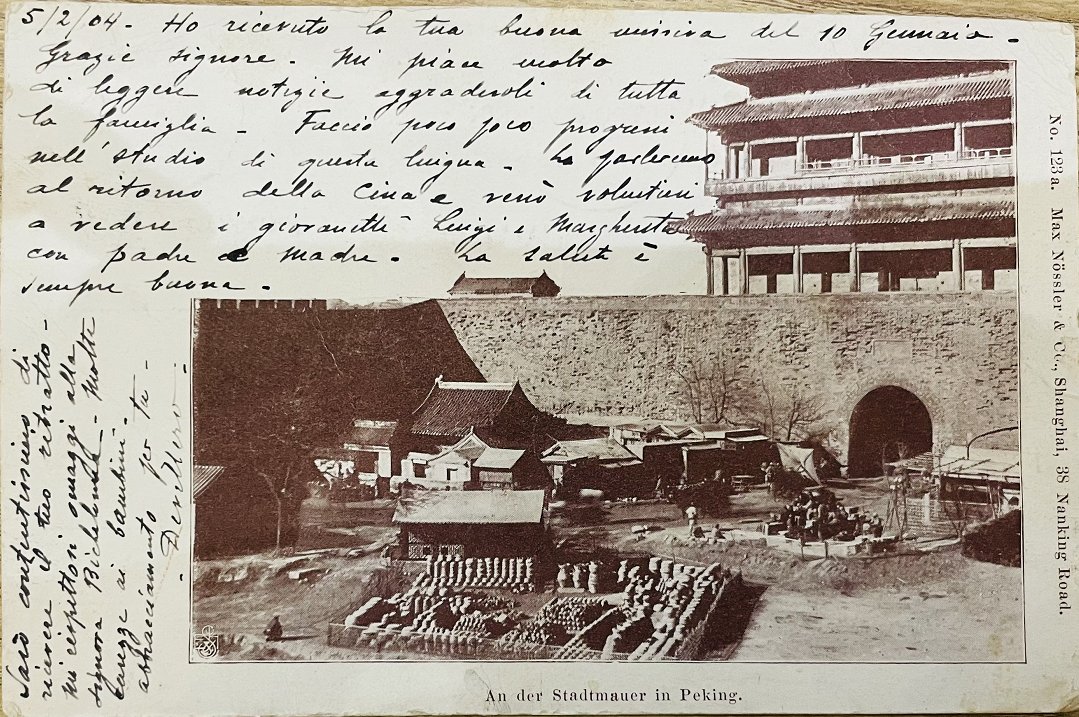 5/2/04 - Ho ricevuto la tua buona missiva del 10 Gennaio -
Grazie signore - Mi piace molto
di leggere notizie aggradevoli di tutta
la famiglia - Faccio poco poco progressi
nell'studio di questa lingua - La parleremo
al ritorno della Cina e verrò volentieri
a vedere i giovanetti Luigi e Margherita
con padre e madre - La salute è
sempre buona -
Sarò contentissimo di
ricevere il tuo ritratto -
Mi rispettosi omaggi alla
signora - Molte
ai bambini -
abbracciamento per te -
An der Stadtmauer in Peking.
No. 123a. Max Nössler & Co., Shanghai, 38 Nanking Road.